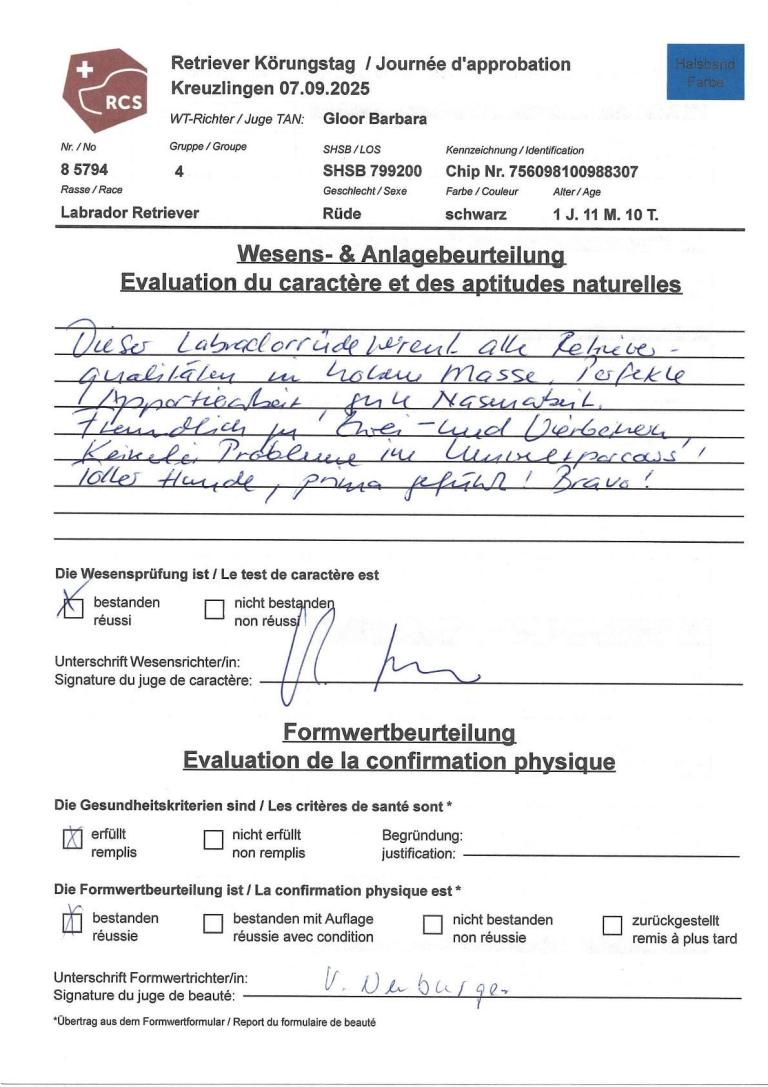 RCS
Retriever Körungstag / Journée d'approbation
Kreuzlingen 07.09.2025
Halsband
Farbe
WT-Richter / Juge TAN: Gloor Barbara
Nr. / No Gruppe / Groupe SHSB / LOS Kennzeichnung / Identification
8 5794 4 SHSB 799200 Chip Nr. 756098100988307
Rasse / Race Geschlecht / Sexe Farbe / Couleur Alter / Age
Labrador Retriever Rüde schwarz 1 J. 11 M. 10 T.
Wesens- & Anlagebeurteilung
Evaluation du caractère et des aptitudes naturelles
Dieser Labradorrüde vereint alle Retriever-
qualitäten in hohem Masse. Perfekte
Apportierarbeit, gute Nasenarbeit.
Freundlich zu Zwei- und Vierbeinern,
Keinerlei Probleme im Umweltparcours!
Toller Hunde, prima geführt! Bravo!
Die Wesensprüfung ist / Le test de caractère est
bestanden nicht bestanden
réussi non réussi
Unterschrift Wesensrichter/in:
Signature du juge de caractère:
Formwertbeurteilung
Evaluation de la confirmation physique
Die Gesundheitskriterien sind / Les critères de santé sont *
erfüllt nicht erfüllt Begründung:
remplis non remplis justification:
Die Formwertbeurteilung ist / La confirmation physique est *
bestanden bestanden mit Auflage nicht bestanden zurückgestellt
réussie réussie avec condition non réussie remis à plus tard
Unterschrift Formwertrichter/in:
Signature du juge de beauté: V.
*Übertrag aus dem Formwertformular / Report du formulaire de beauté